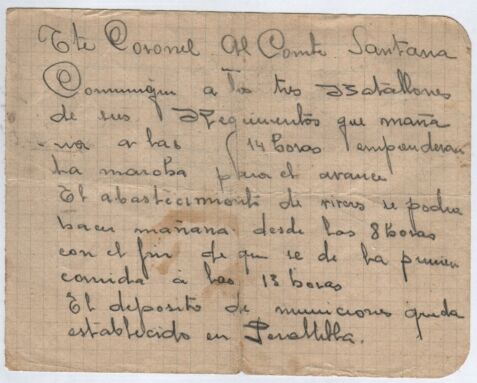 Tte Coronel Al Comte Santana
Comunique a los tres Batallones
de sus Regimientos que maña
na a las 14 horas emprenderan
la marcha para el avance
El abastecimiento de viveres se podra
hacer mañana desde las 8 horas
con el fin de que se de la primer
comida á las 13 horas
El deposito de municiones queda
establecido en Peraltilla.